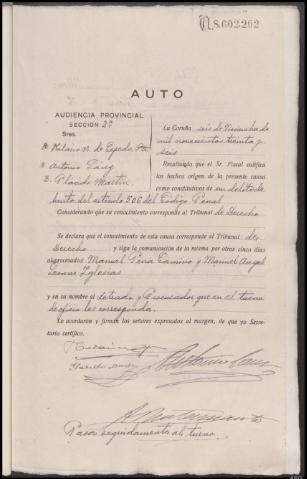 N.8.602.262
AUTO
AUDIENCIA PROVINCIAL
SECCION 2ª
Sres.
D. Antonio
D. Plácido Martín
La Coruña seis de Noviembre de
mil novecientos treinta y
seis
Resultando que el Sr. Fiscal califica
los hechos origen de la presente causa
como constitutivos de un delito de
hurto del artículo 506 del Código Penal
Considerando que su conocimiento corresponde al Tribunal de Derecho
Se declara que el conocimiento de esta causa corresponde al Tribunal de
Derecho y siga la comunicación de la misma por otros cinco días
a procesados Manuel Pena Camino y Manuel Angel
Iglesias
y en su nombre al Letrado y Procurador que en el turno
de oficio les corresponda.
Lo acordaron y firman los señores expresados al margen, de que yo Secre-
tario certifico.
Pasa seguidamente al turno.